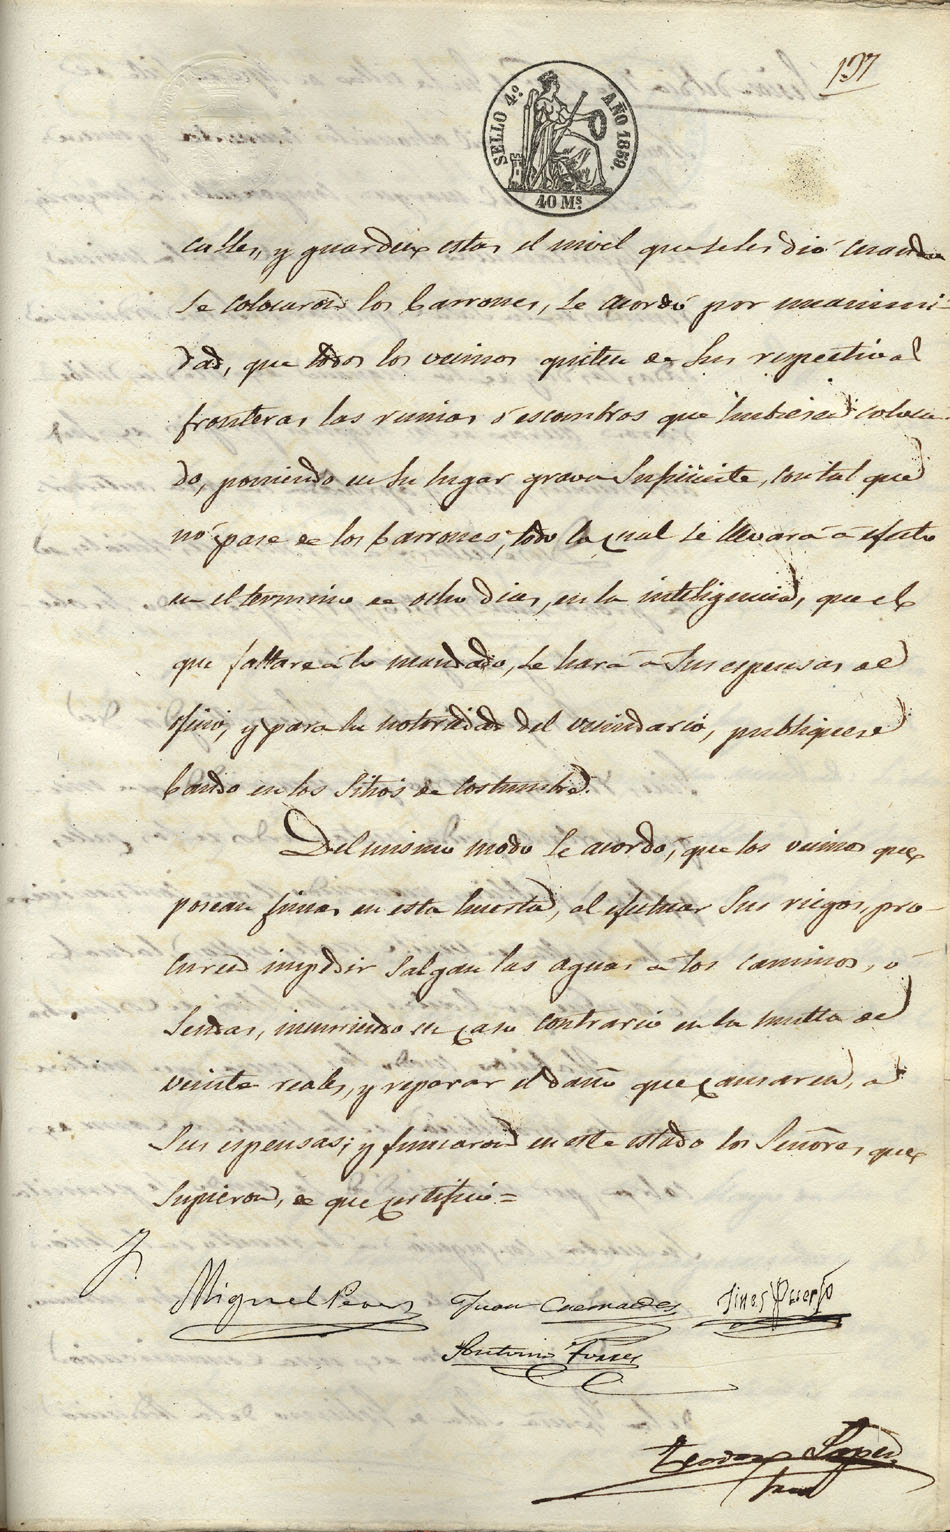 137
SELLO 4.º AÑO 1859.
40 Ms
calles, y guarden estas el nivel que se les dió cuando
se colocaron los barrones, se acordó por unanimi-
dad, que todos los vecinos quiten de sus respectivas
fronteras las ruinas ó escombros que hubiesen coloca
do, poniendo en su lugar grava suficiente, con tal que
no pase de los barrones; todo lo cual se llevará á efecto
en el termino de ocho dias, en la inteligencia, que el
que faltare á lo mandado, se hará á sus espensas de
oficio, y para la notoriedad del vecindario, publiquese
bando en los sitios de costumbre.
Del mismo modo se acordó, que los vecinos que
posean fincas en esta huerta, al efectuar sus riegos, pro-
curen impedir salgan las aguas á los caminos, ó
sendas, incurriendo en caso contrario en la multa de
veinte reales, y reparar el daño que causaren, á
sus espensas; y firmaron en este estado los Señores que
supieron, de que certifico =
Miguel Perez Juan Cremades Gines Puerto
Antonio Torres
Teodoro Lopez